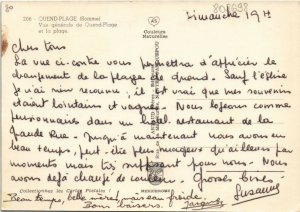 80
206 - QUEND-PLAGE (Somme)
Vue générale de Quend-Plage
et la plage.
Couleurs
Naturelles
808698
Dimanche 19 H
Chers tous
La vue ci-contre vous permettra d'apprécier le
changement de la plage de Quend. Sauf l'église
je n'ai rien reconnu, il est vrai que mes souvenirs
étaient lointains et vagues. Nous logeons comme
pensionnaires dans un hôtel restaurant de la
Grande Rue. Jusqu'à maintenant nous avons eu
beau temps, peut être plus nuageux qu'ailleurs par
moments mais tès supportable pour nous. Nous
avons déjà changé de couleur. Grosses bises
Collectionnez les Cartes Postales ! Suzanne
Beau temps, belle mer, mais eau froide.
Bons baisers.